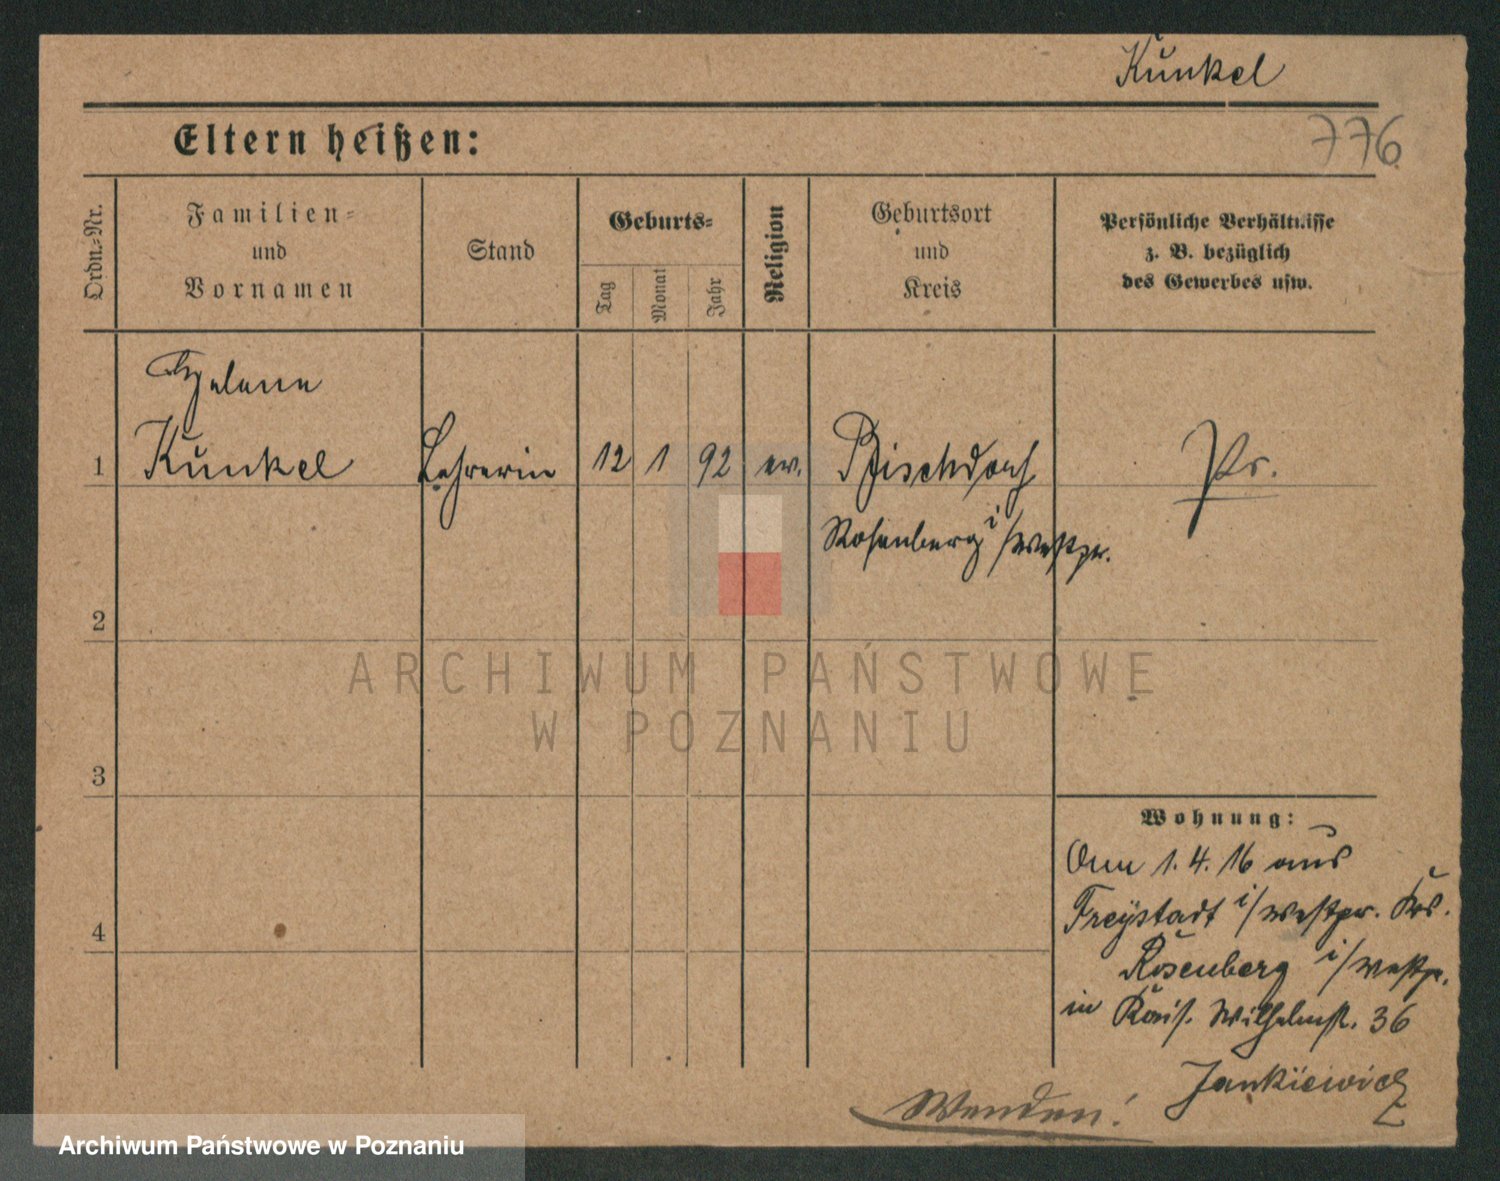 Kunkel
776
Eltern heißen:
Ordn.-Nr.
Familien-
und
Vornamen
Stand
Geburts-
Tag
Monat
Jahr
Religion
Geburtsort
und
Kreis
Persönliche Verhältnisse
z. B. bezüglich
des Gewerbes usw.
Helene
1 Kunkel Lehrerin 12 1 92 ev. Bischdorf Pr.
Rosenberg i/Westpr.
2
ARCHIWUM PAŃSTWOWE
W POZNANIU
3
Wohnung:
Am 1.4.16 aus
Freystadt i/Westpr. Krs.
4
Rosenberg i/Westpr.
in Kais. Wilhelmstr. 36
Jankiewicz
Wenden!
Archiwum Państwowe w Poznaniu